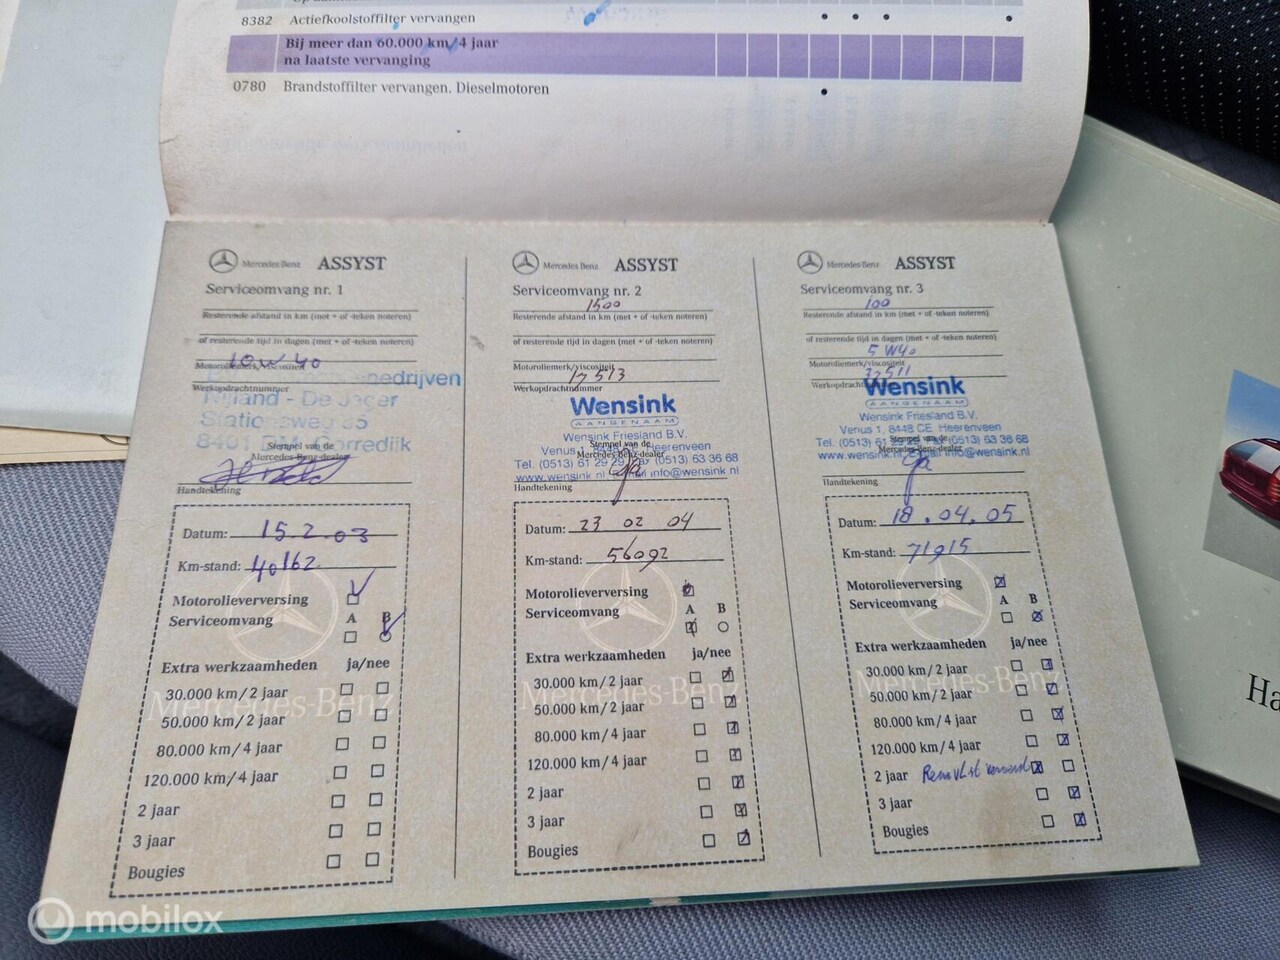 8382 Actiefkoolstoffilter vervangen
Bij meer dan 60.000 km/4 jaar
na laatste vervanging
0780 Brandstoffilter vervangen. Dieselmotoren
Mercedes-Benz ASSYST
Serviceomvang nr. 1
Resterende afstand in km (met + of -teken noteren)
of resterende tijd in dagen (met + of -teken noteren)
10W40
Motoroliemerk/viscositeit
Werkopdrachtnummer
bedrijven
Nijland - De Jager
Stationsweg
8401 Gorredijk
Stempel van de
Mercedes-Benz-dealer
Handtekening
Datum: 15.2.03
Km-stand: 40162
Motorolieverversing
Serviceomvang A B
Extra werkzaamheden ja/nee
30.000 km/2 jaar
50.000 km/2 jaar
80.000 km/4 jaar
120.000 km/4 jaar
2 jaar
3 jaar
Bougies
Mercedes-Benz
Mercedes-Benz ASSYST
Serviceomvang nr. 2
1500
Resterende afstand in km (met + of -teken noteren)
of resterende tijd in dagen (met + of -teken noteren)
Motoroliemerk/viscositeit
17513
Werkopdrachtnummer
Wensink
AANGENAAM
Wensink Friesland B.V.
Venus Heerenveen
Stempel van de
Mercedes-Benz-dealer
Tel. (0513) 61 29 29 Fax (0513) 63 36 68
www.wensink.nl E-mail info@wensink.nl
Handtekening
Datum: 23 02 04
Km-stand: 56092
Motorolieverversing
Serviceomvang A B
Extra werkzaamheden ja/nee
30.000 km/2 jaar
50.000 km/2 jaar
80.000 km/4 jaar
120.000 km/4 jaar
2 jaar
3 jaar
Bougies
Mercedes-Benz
Mercedes-Benz ASSYST
Serviceomvang nr. 3
100
Resterende afstand in km (met + of -teken noteren)
of resterende tijd in dagen (met + of -teken noteren)
5W40
Motoroliemerk/viscositeit
Werkopdrachtnummer
Wensink
AANGENAAM
Wensink Friesland B.V.
Venus 1, 8448 CE Heerenveen
Tel. (0513) 61 29 29 Fax (0513) 63 36 68
Stempel van de
Mercedes-Benz-dealer
www.wensink.nl E-mail info@wensink.nl
Handtekening
Datum: 18.04.05
Km-stand: 71915
Motorolieverversing
Serviceomvang A B
Extra werkzaamheden ja/nee
30.000 km/2 jaar
50.000 km/2 jaar
80.000 km/4 jaar
120.000 km/4 jaar
2 jaar
3 jaar
Bougies
Mercedes-Benz
Ha
mobilox